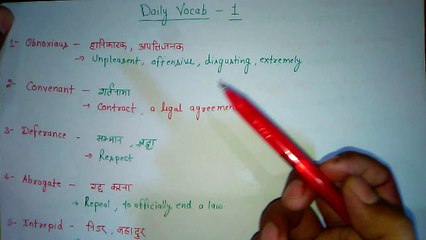 Daily Vocab - 1
1- Obnoxious - हानिकारक, आपत्तिजनक
→ Unpleasent, offensive, disgusting, extremely
2- Convenant - शर्तनामा
→ Contract, a legal agreement
3- Deferance - सम्मान, श्रद्धा
→ Respect
4- Abrogate - रद्द करना
→ Repeal, to officially end a law
5- Intrepid - निडर, बहादुर